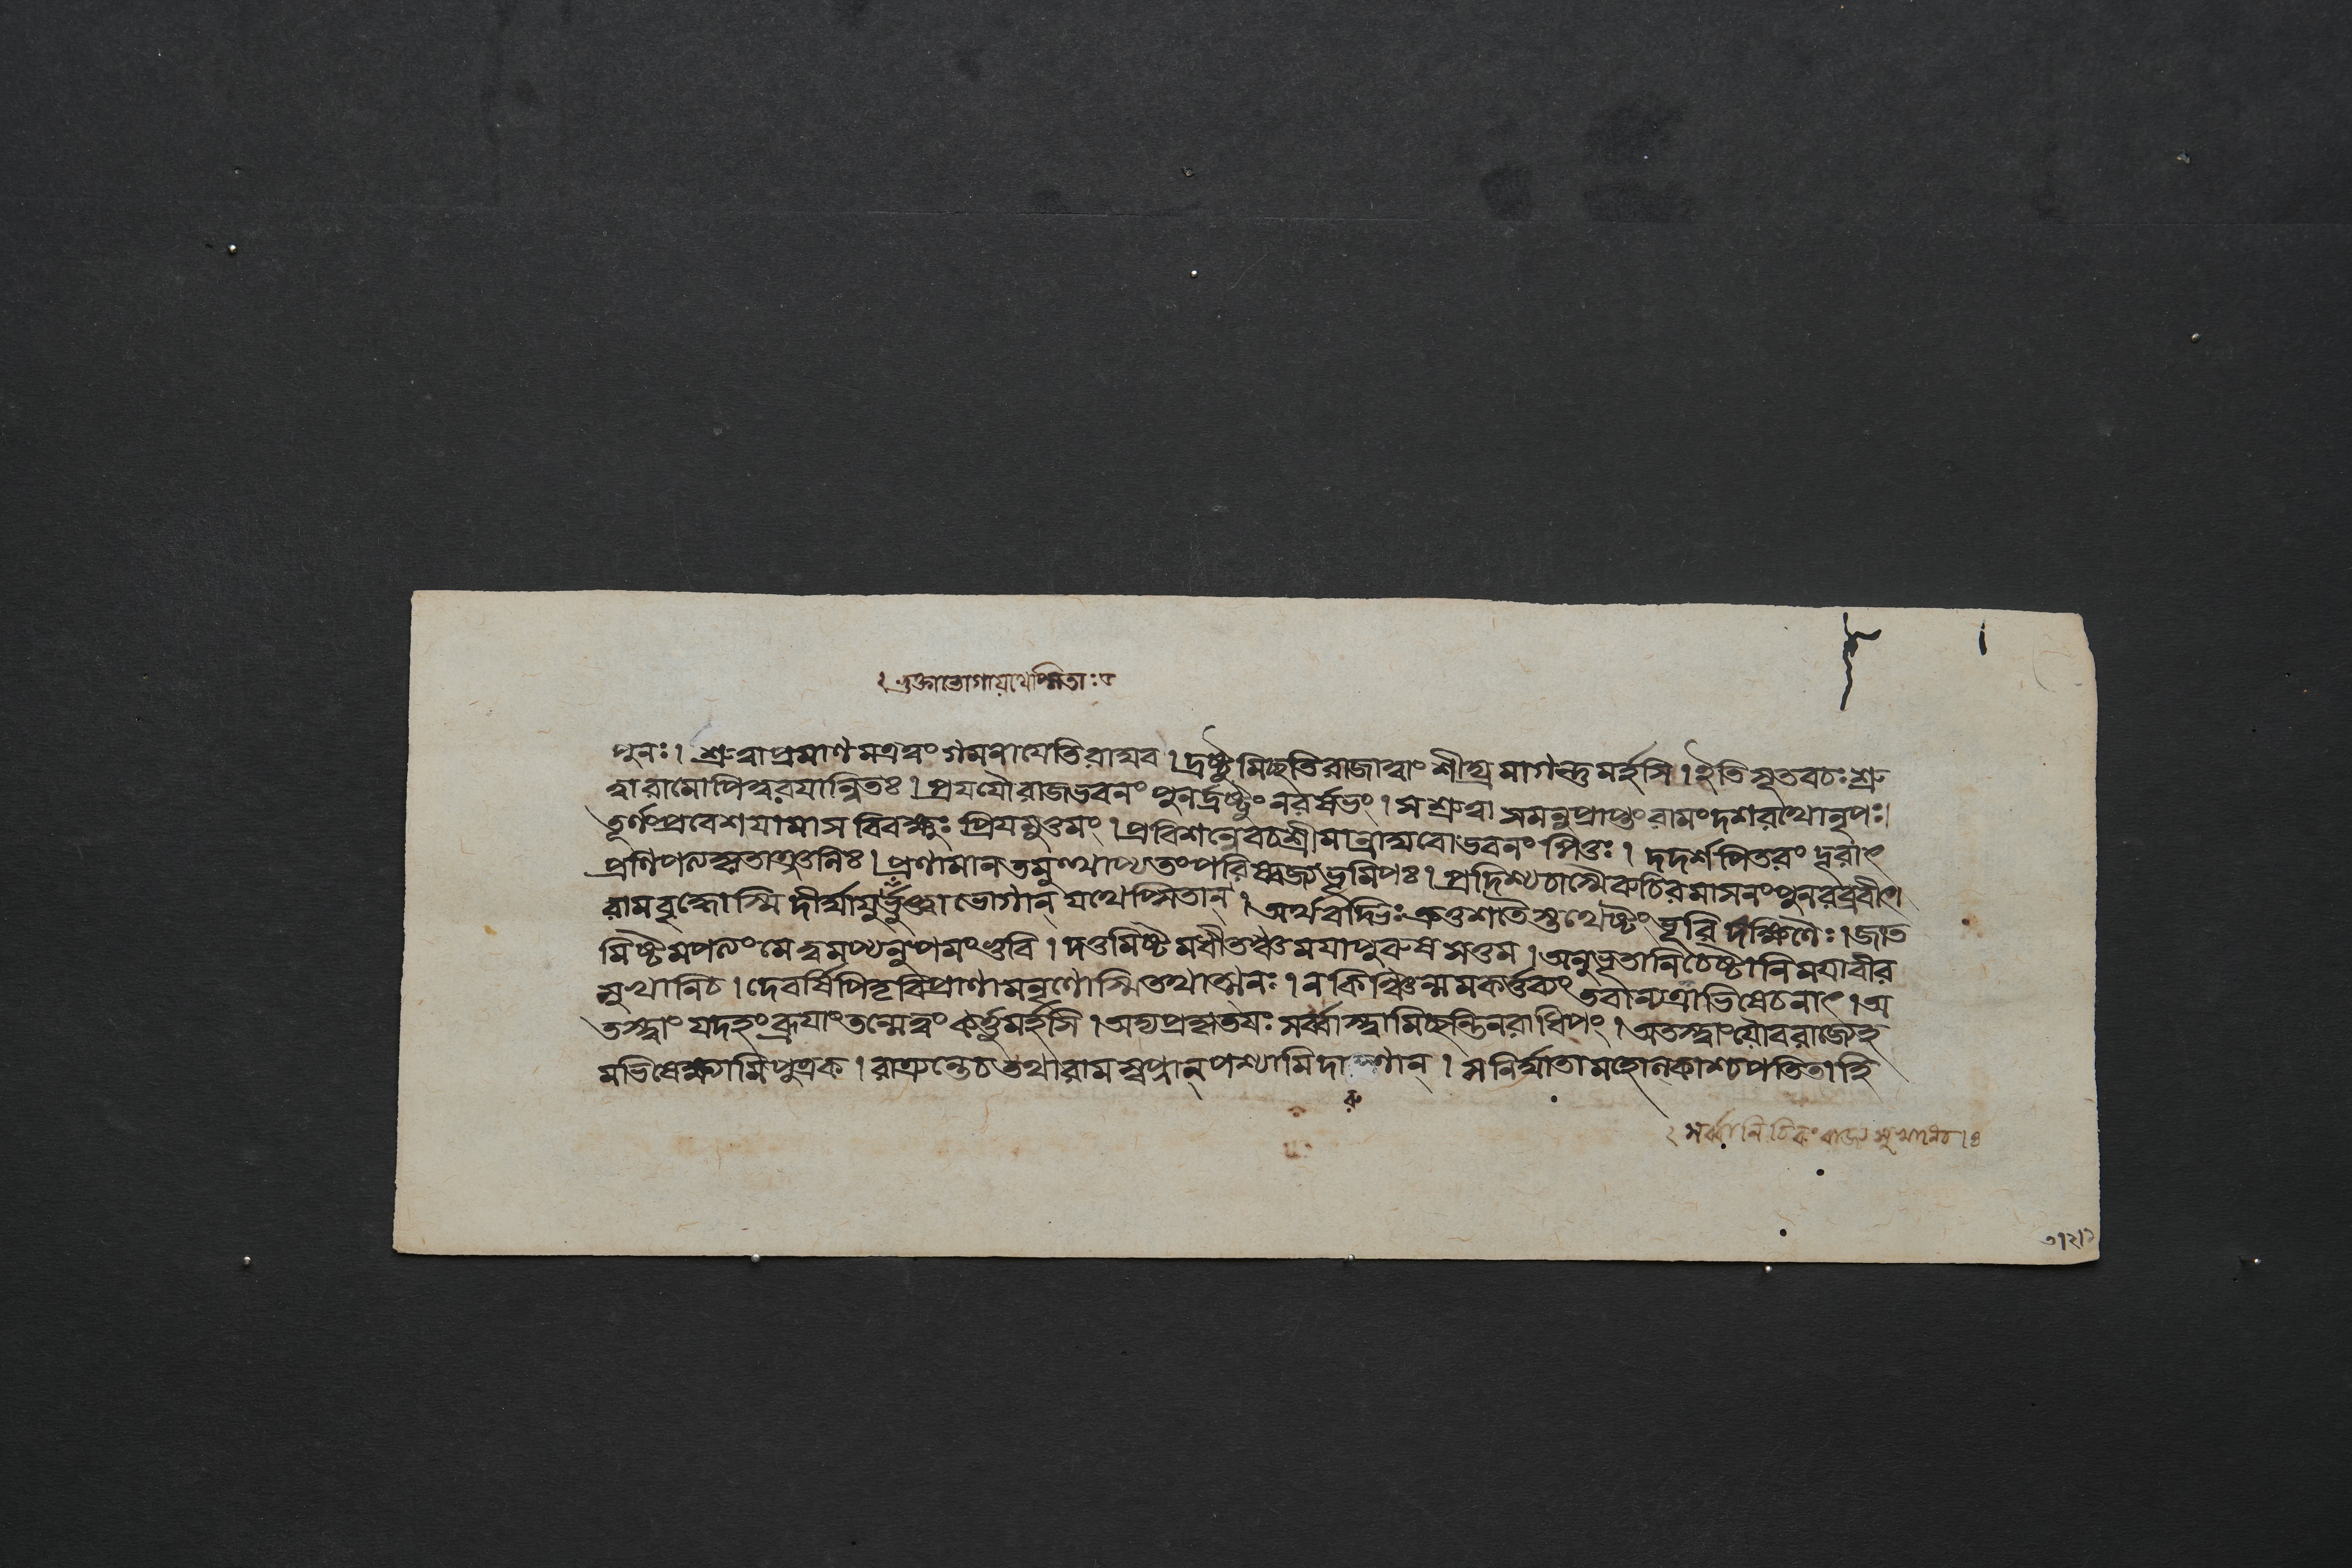 ২ ভুক্তাভোগাযথেপ্সিতাঃ ৫
পুনঃ। শ্রুত্বাপ্রমাণমত্রত্বং গমনাযেতিরাঘব। দ্রষ্টুমিচ্ছতিরাজাত্বাং শীঘ্রমাগন্তুমর্হসি। ইতিসূতবচঃশ্রু
ত্বারামোপিত্বরযান্বিতঃ। প্রযযৌরাজভবনং পুনর্দ্রষ্টুং নরর্ষভং। সশ্রুত্বা সমনুপ্রাপ্তং রামংদশরথোনৃপঃ।
তূর্ণংপ্রবেশযামাস বিবক্ষুঃ প্রিযমুত্তমং। প্রবিশন্নেবচশ্রীমান্রাঘবোভবনং পিতুঃ। দদর্শপিতরং দূরাৎ
প্রণিপত্যকৃতাঞ্জলিঃ। প্রণমন্তংতমুত্থাপ্যতংপরিষ্বজ্যভূমিপঃ। প্রদিশ্যচাস্মৈরুচিরমাসনংপুনরব্রবীৎ।
রামবৃদ্ধোস্মি দীর্ঘাযুর্ভুক্ত্বা ভোগান্ যথেপ্সিতান্। অর্থবদ্ভিঃক্রতুশতৈস্তথেষ্টং ভূরি দক্ষিণৈঃ। জাত
মিষ্টমপত্যংমেত্বমপ্যনুপমংভুবি। দত্তমিষ্টমধীতঞ্চমযাপুরুষ সত্তম। অনুভূতানিচেষ্টানিমযাবীর
সুখানিচ। দেবর্ষিপিতৃবিপ্রাণামনৃণোস্মিতথাত্মনঃ। নকিঞ্চিন্মমকর্ত্তব্যং তবান্যত্রাভিষেচনাৎ। অ
তস্ত্বাং যদহংব্রূযাংতন্মেত্বং কর্ত্তুমর্হসি। অদ্যপ্রকৃতযঃ সর্ব্বাস্ত্বামিচ্ছন্তিনরাধিপং। অতস্ত্বাংযৌবরাজ্যেহ
মভিষেক্ষ্যামিপুত্রক। রাত্র্যন্তেচতথারামস্বপ্নান্পশ্যামিদা ণান্। সনির্ঘাতামহোল্কাশ্চপতিতাহি
রু
২ সর্ব্বানি রাজ্য সুখানিচ।৪